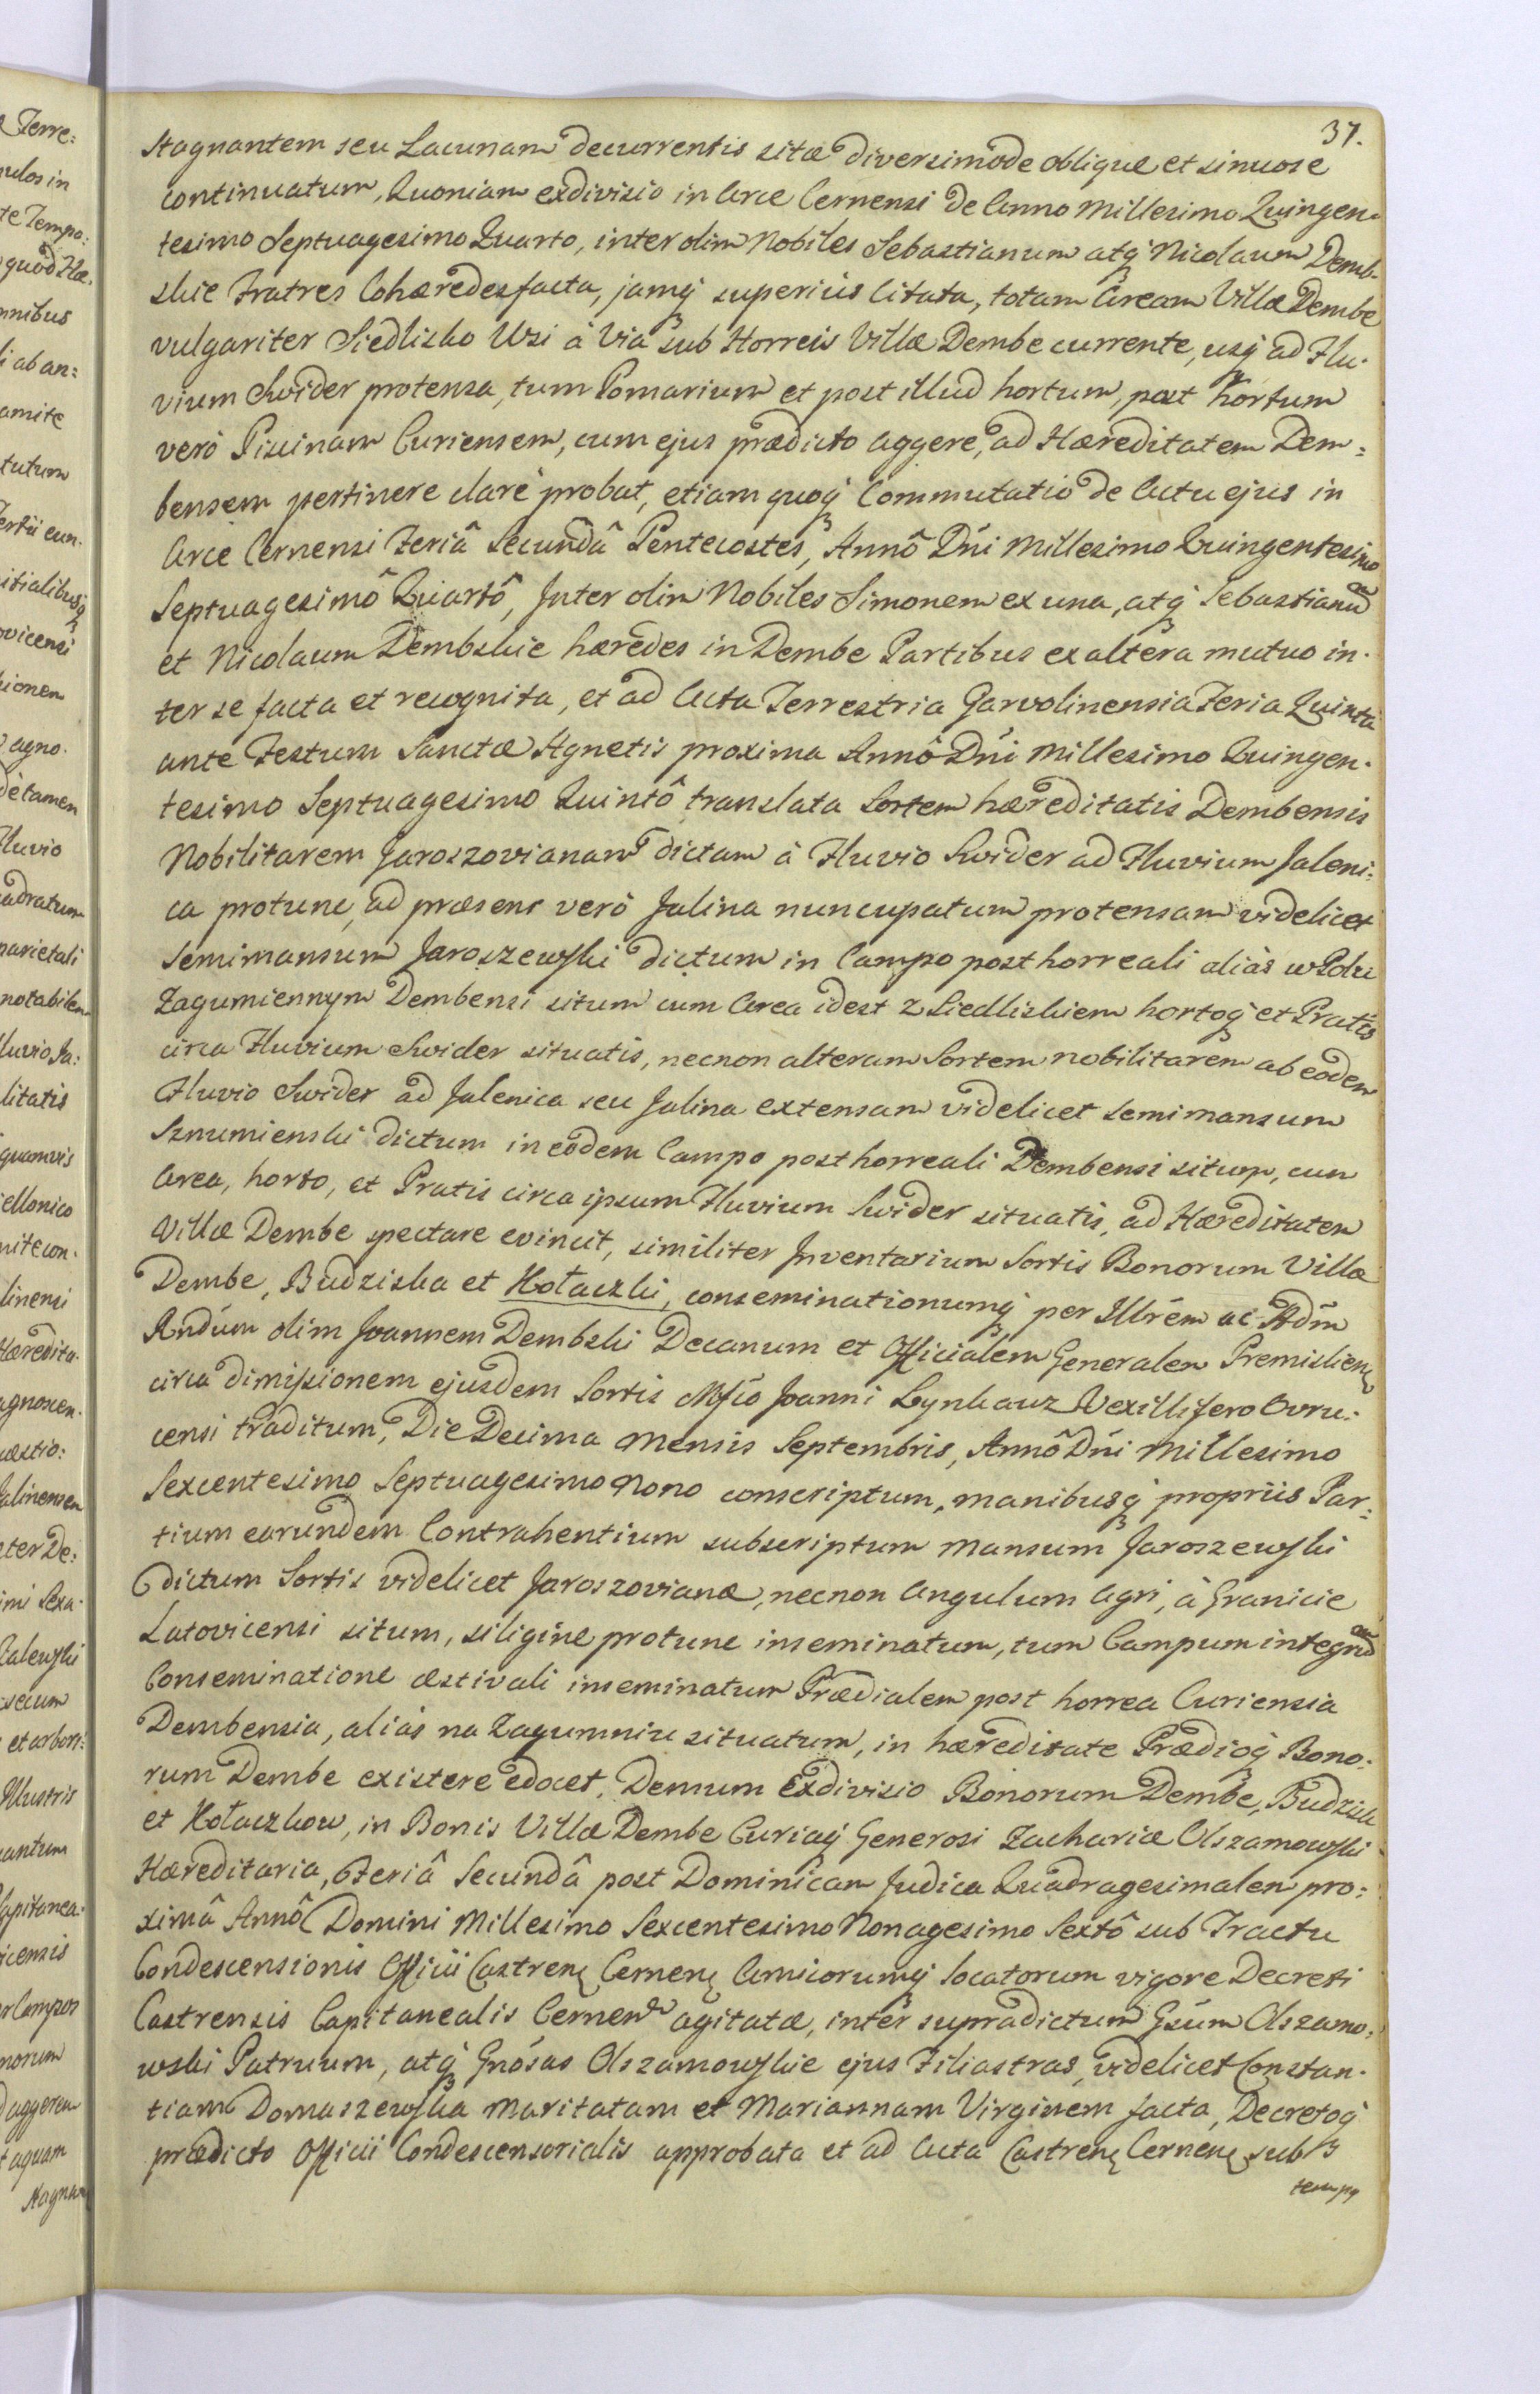 37.
Stagnantem seu Lacunam decurrentis sitæ diversimode oblique et sinuose
continuatum, Quoniam exdivisio in Arce Cernensi de Anno Millesimo Quingen-
tesimo Septuagesimo Quarto, inter olim Nobiles Sebastianum atq Nicolaum Demb-
skie Fratres Cohæredes facta, jamq superius Citata, totam Aream Villæ Dembe
vulgariter Siedlisko Wsi à Via sub Horreis Villæ Dembe currente, usq ad Flu-
vium Swider protensa, tum Pomarium et post illud hortum, post hortum
verò Piscinam Curiensem, cum ejus prædicto Aggere, ad Hæreditatem Dem=
bensem pertinere clarè probat, etiam quoq Commutatio de Actu ejus in
Arce Cernensi Feriâ Secundâ Pentecostes, Annô Dni Millesimo Quingentesimo
Septuagesimô Quartô, Inter olim Nobiles Simonem ex una, atq Sebastianu
et Nicolaum Dembskie hæredes in Dembe Partibus ex altera mutuo in-
ter se facta et recognita, et ad Acta Terrestria Garvolinensia Feria Quinta
ante Festum Sanctæ Agnetis proxima Annô Dni Millesimo Quingen-
tesimo Septuagesimo Quintô translata Sortem hæreditatis Dembensis
Nobilitarem Jaroszovianam dictam à Fluvio Swider ad Fluvium Jaleni=
ca protunc, ad præsens verò Jalina nuncupatum protensam videlicet
Semimansum Jaroszewski dictum in Campo posthorreali aliàs w Polu
Zagumiennym Dembensi situm cum Area idest z Siedliskiem hortoq et Pratis
circa Fluvium Swider situatis, necnon alteram Sortem nobilitarem ab eodem
Fluvio Swider ad Jalenica seu Jalina extensam videlicet semimansum
Sznumienski dictum in eodem Campo posthorreali Dembensi situm, cum
Area, horto, et Pratis circa ipsum Fluvium Swider situatis, ad Hæreditatem
Villæ Dembe spectare evincit, similiter Inventarium Sortis Bonorum Villæ
Dembe, Budziska et Kołaczki, conseminationumq per Illrem ac Adm
Rndum olim Joannem Dembski Decanum et Officialem Generalem Premislien
circa dimissionem ejusdem Sortis Mfco Joanni Lynkauz Vexillifero Ovru=
censi traditum, Die Decima Mensis Septembris, Annô Dni Millesimo
Sexcentesimo Septuagesimo Nono conscriptum, manibusq propriis Par=
tium earundem Contrahentium subscriptum Mansum Jaroszewski
dictum Sortis videlicet Jaroszovianæ, necnon Angulum Agri, à Granicie
Latovicensi situm, siligine protunc inseminatum, tum Campum integru
Conseminatione æstivali inseminatum Prædialem post horrea Curiensia
Dembensia, aliàs na Zagumniu situatum, in hæreditate Prædioq Bono=
rum Dembe existere edocet, Demum Exdivisio Bonorum Dembe, Budzisk
et Kołaczkow, in Bonis Villæ Dembe Curiaq Generosi Zachariæ Olszamowski
Hæreditaria, Feriâ Secundâ post Dominicam Judica Quadragesimalem pro=
ximâ Annô Domini Millesimo Sexcentesimo Nonagesimo Sextô sub Tractu
Condescensionis Officii Castren Cernen Amicorumq locatorum vigore Decreti
Castrensis Capitanealis Cernen agitatæ, inter supradictum Gsum Olszamo=
wski Patruum, atq Gnosas Olszamowskie ejus Filiastras, videlicet Constan-
tiam Domaszewska Maritatam et Mariannam Virginem facta, Decretoq
prædicto Officii Condescensorialis approbata et ad Acta Castren Cernen sub